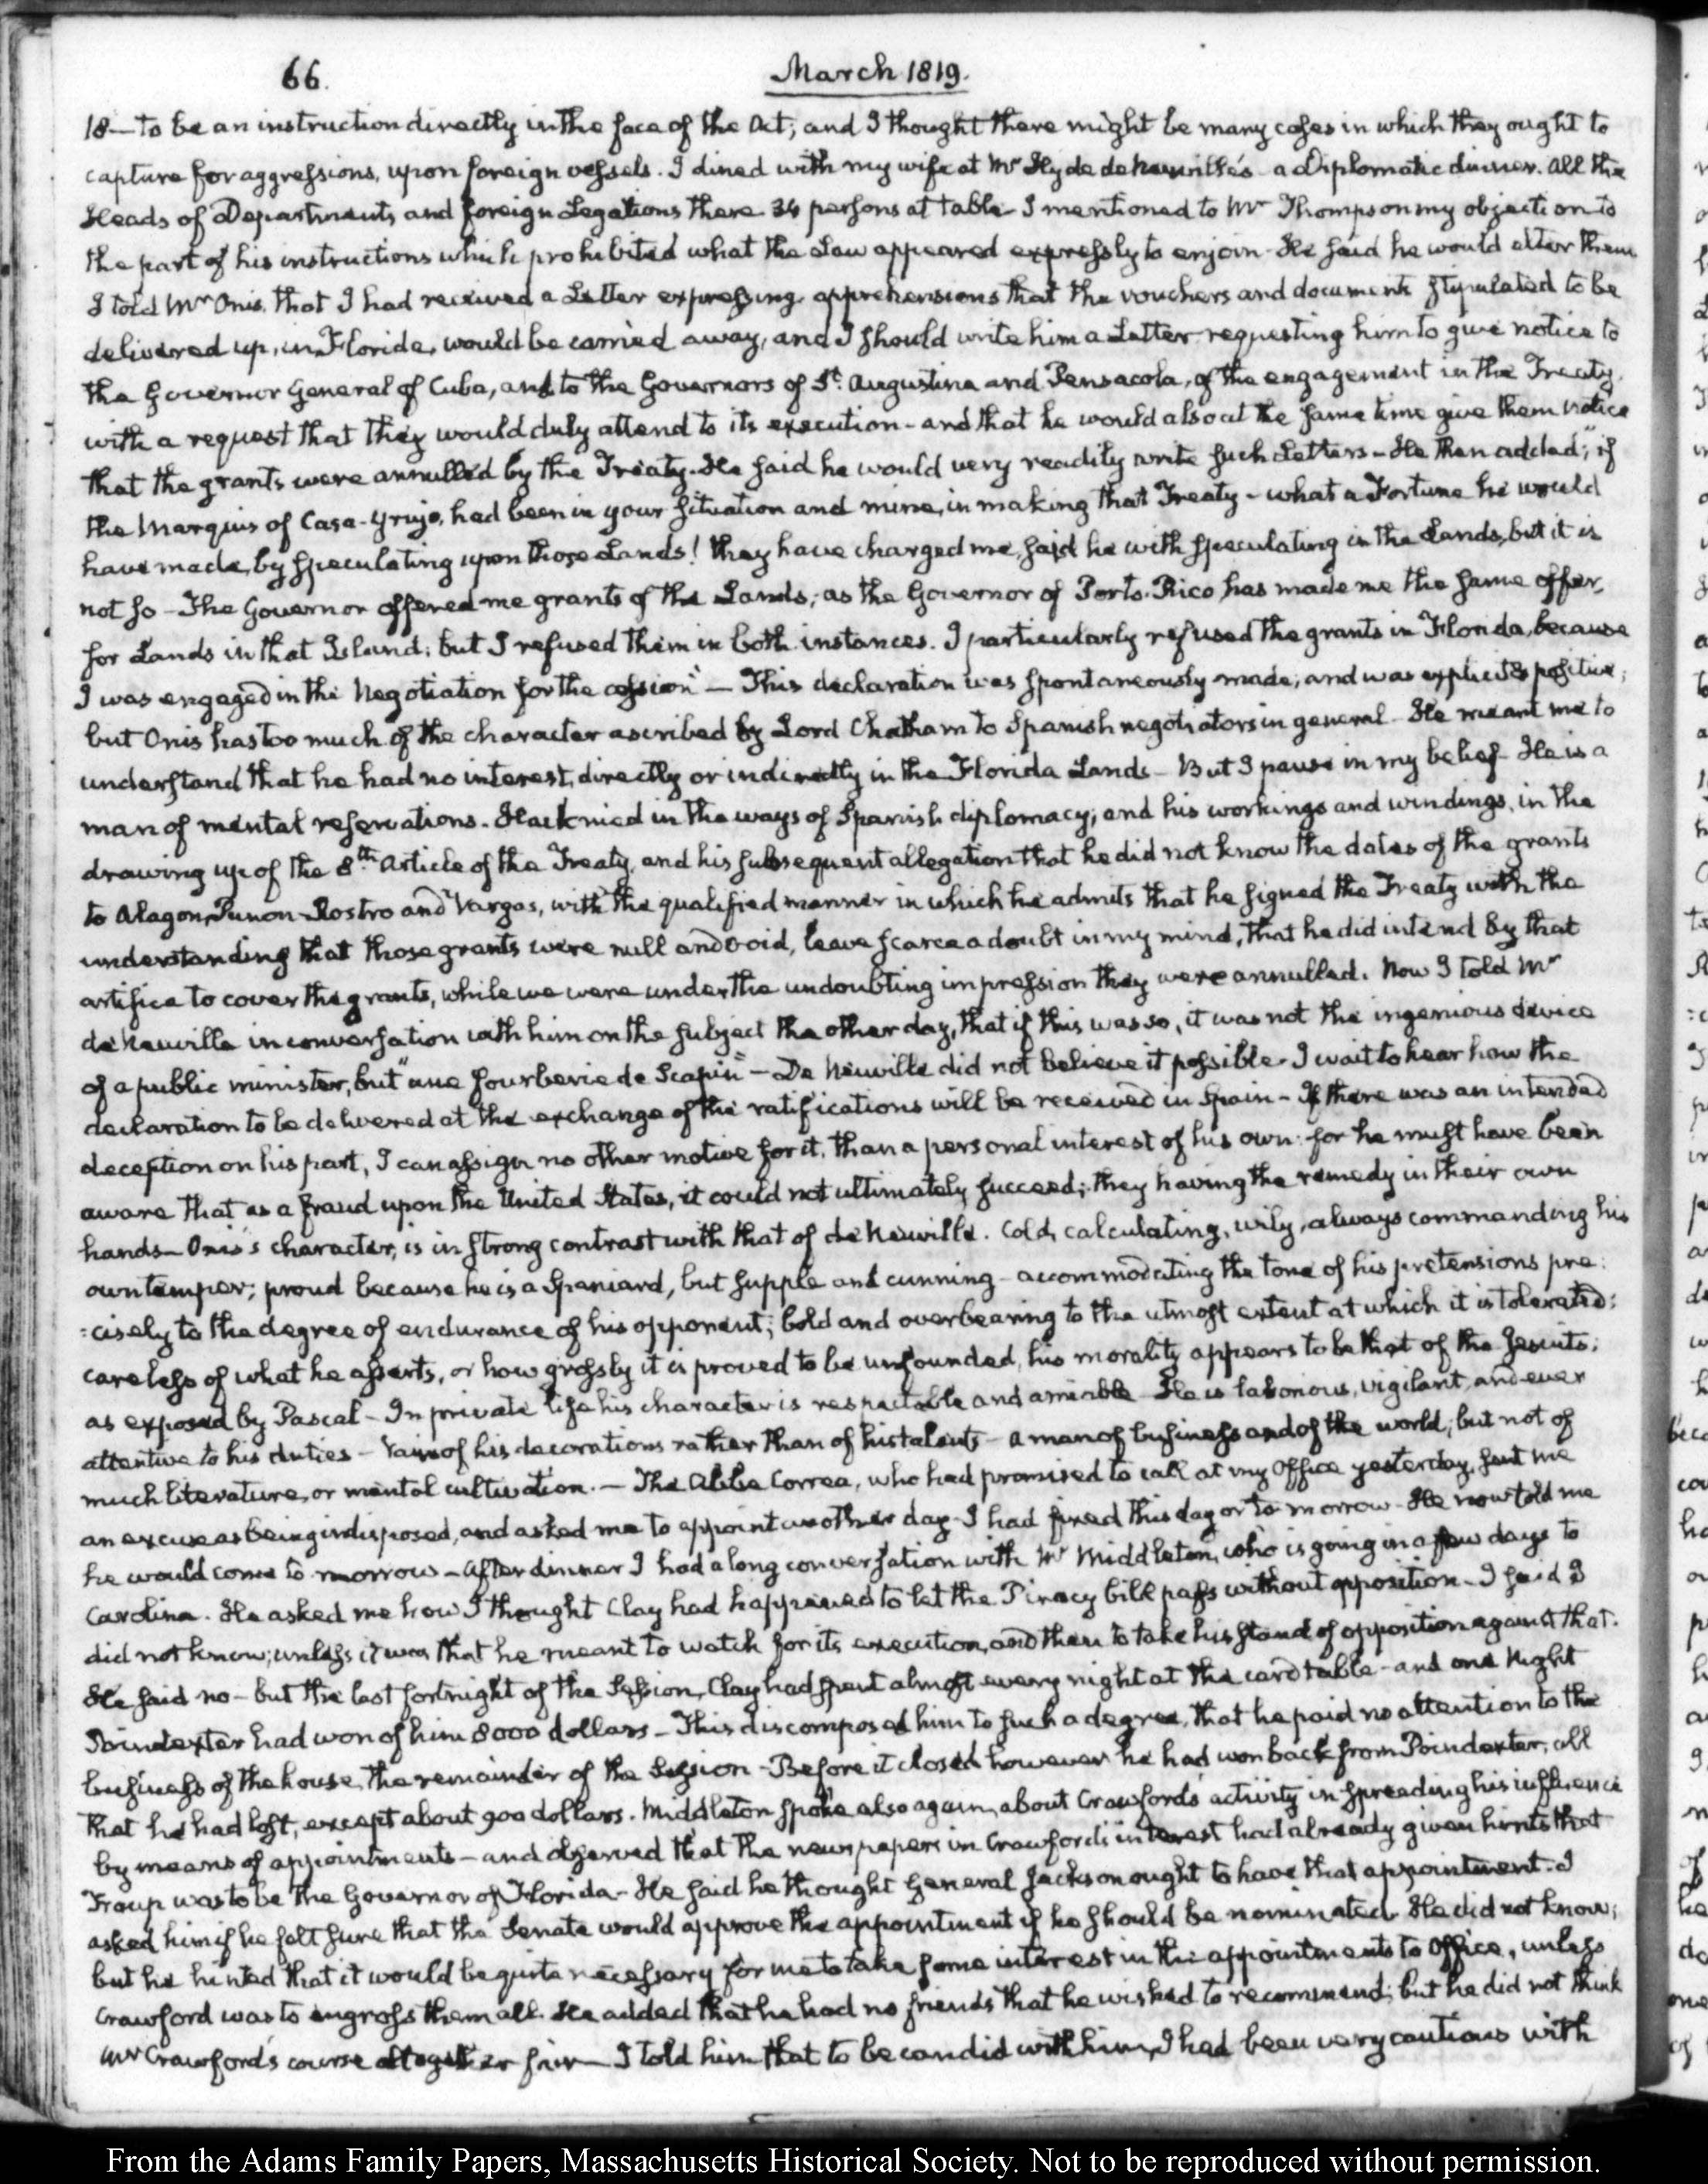 66.
March 1819.
18— to be an instruction directly in the face of the Act; and I thought there might be many cases in which they ought to
capture for aggressions, upon foreign vessels. I dined with my wife at Mr Hyde de Neuville's a Diplomatic dinner. All the
Heads of Departments, and foreign Legations there 34 persons at table I mentioned to Mr Thompson my objection to
the part of his instructions which prohibited what the Law appeared expressly to enjoin - He said he would alter them
I told Mr Onis, that I had received a Letter expressing apprehensions that the vouchers and documents stipulated to be
delivered up, in Florida, would be carried away, and I should write him a Letter requesting him to give notice to
the Governor General of Cuba, and to the Governors of St. Augustine and Pensacola, of the engagement in the Treaty,
with a request that they would duly attend to its execution - and that he would also at the same time give them notice
that the grants were annulled by the Treaty. He said he would very readily write such Letters - He then added; "if
the Marquis of Casa-Yrujo, had been in your situation and mine, in making that Treaty - what a Fortune he would
have made, by speculating upon those Lands! they have charged me, said he with speculating in the Lands, but it is
not so - The Governor offered me grants of the Lands; as the Governor of Porto-Rico has made me the same offer,
for Lands in that Island; but I refused them in both instances. I particularly refused the grants in Florida, because
I was engaged in the Negotiation for the cession" — This declaration was spontaneously made; and was explicit & positive;
but Onis has too much of the character ascribed by Lord Chatham to Spanish negotiators in general - He meant me to
understand that he had no interest, directly or indirectly in the Florida Lands - But I pause in my belief - He is a
man of mental reservations. Hacknied in the ways of Spanish diplomacy; and his workings and windings, in the
drawing up of the 8th Article of the Treaty, and his subsequent allegation that he did not know the dates of the grants
to Alagon, Punon-Rostro and Vargas, with the qualified manner in which he admits that he signed the Treaty with the
understanding that those grants were null and void, leave scarce a doubt in my mind, that he did intend by that
artifice to cover the grants, while we were under the undoubting impression they were annulled. Now I told Mr
de Neuville in conversation with him on the subject the other day, that if this was so, it was not the ingenious device
of a public minister, but "une fourberie de Scapin" — De Neuville did not believe it possible - I wait to hear how the
declaration to be delivered at the exchange of the ratifications will be received in Spain - If there was an intended
deception on his part, I can assign no other motive for it, than a personal interest of his own: for he must have been
aware that as a fraud upon the United States, it could not ultimately succeed; they having the remedy in their own
hands - Onis's character, is in strong contrast with that of de Neuville. Cold, calculating, wily, always commanding his
own temper; proud because he is a Spaniard, but supple and cunning - accommodating the tone of his pretensions pre:
:cisely to the degree of endurance of his opponent; bold and overbearing to the utmost extent at which it is tolerated:
careless of what he asserts, or how grossly it is proved to be unfounded, his morality appears to be that of the Jesuits;
as exposed by Pascal - In private life his character is respectable and amiable - He is laborious, vigilant, and ever
attentive to his duties - Vain of his decorations rather than of his talents - a man of business and of the world, but not of
much literature, or mental cultivation. — The Abbe Correa, who had promised to call at my Office yesterday, sent me
an excuse as being indisposed, and asked me to appoint another day - I had fixed this day or to-morrow - He now told me
he would come to-morrow - After dinner I had a long conversation with Mr Middleton, who is going in a few days to
Carolina. He asked me how I thought Clay had happened to let the Piracy bill pass without opposition - I said I
did not know; unless it was that he meant to watch for its execution, and then to take his stand of opposition against that.
He said no - but the last fortnight of the Session, Clay had spent almost every night at the card table - and one Night
Poindexter had won of him 8000 dollars - This discomposed him to such a degree, that he paid no attention to the
business of the house, the remainder of the Session - Before it closed however he had won back from Poindexter, all
that he had lost, except about 900 dollars. Middleton spoke also again, about Crawford's activity in spreading his influence
by means of appointments - and observed that the newspapers in Crawford's interest had already given hints that
Troup was to be the Governor of Florida - He said he thought General Jackson ought to have that appointment. I
asked him if he felt sure that the Senate would approve the appointment if he should be nominated - He did not know;
but he hinted that it would be quite necessary for me to take some interest in the appointments to Office, unless
Crawford was to engross them all. He added that he had no friends that he wished to recommend; but he did not think
Mr Crawford's course altogether fair - I told him that to be candid with him, I had been very cautious with
From the Adams Family Papers, Massachusetts Historical Society. Not to be reproduced without permission.